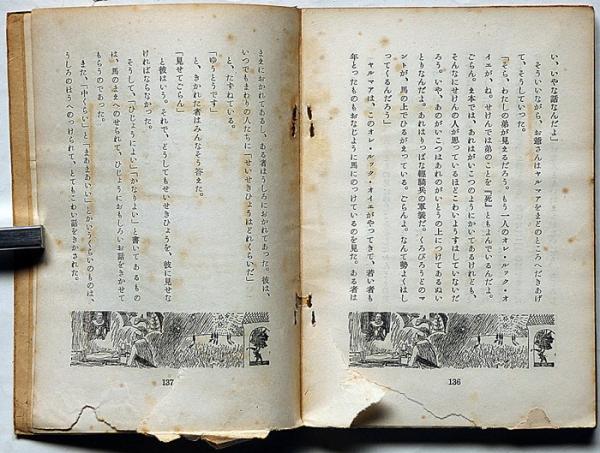 い、いやな話なんだよ」
そういいながら、お爺さんはヤルマアをまどのところへだきあげ
て、そうしていった。
「そら、わたしの弟が見えるだろう。もう一人のオレ・ルック・オ
イエが、ね。せけんでは弟のことを『死』ともよんでいるんだよ。
ごらん。ま本では、あれはがいこつのようにかいてあるけれども、
そんなにせけんの人が思っているほどこわいようすはしていないだ
ろう。いや、あのがいこつはあれのがいとうの上につけてあるぬい
とりなんだよ。あれはりっぱな軽騎兵の軍装だ。くろびろうどのマ
ントが、馬の上でひるがえっている。ごらんよ。なんて勢よくはし
ってくるんだろう」
ヤルマアは、このオレ・ルック・オイエがやってきて、若い者も
年とったものもおなじように馬にのっけているのを見た。ある者は
136
とまにおかれてあるし、ある者はうしろにおかれてあった。彼は、
いつでもまわりの人たちに「せいせきひょうはどれくらいだ」
と、たずねている。
「ゆうとうです」
と、きかれた者はみんなそう答えた。
「見せてごらん」
と彼はいう。それで、どうしてもせいせきひょうを、彼に見せな
ければならなかった。
そうして、「ひじょうによい」「かなりよい」と書いてあるもの
は、馬のまえへのせられて、ひじょうにおもしろいお話をきかせて
もらうのであった。
また、「中くらい」と「まあまあいい」とかいうくらいのものは、
うしろのほうへのっけられて、とてもこわい話をきかされた。
137